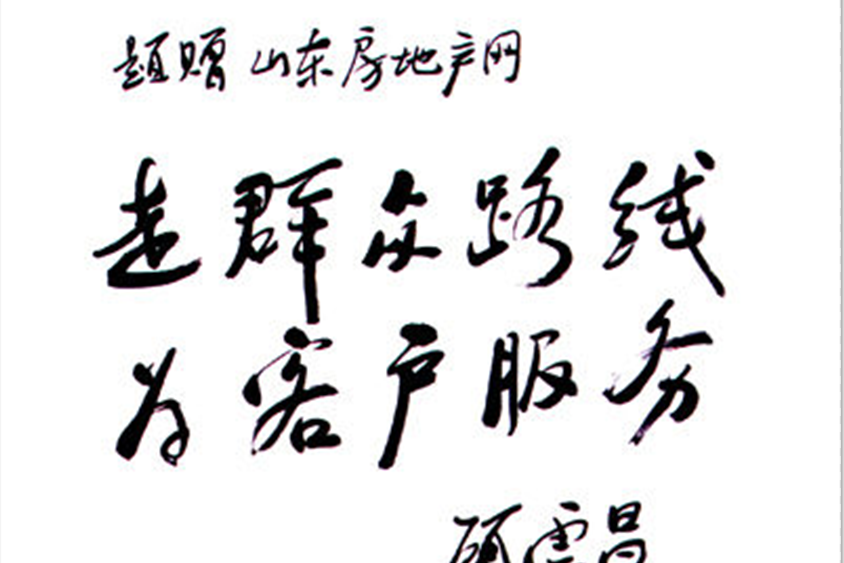 题赠 山东房地产网
走群众路线
为客户服务
顾云昌